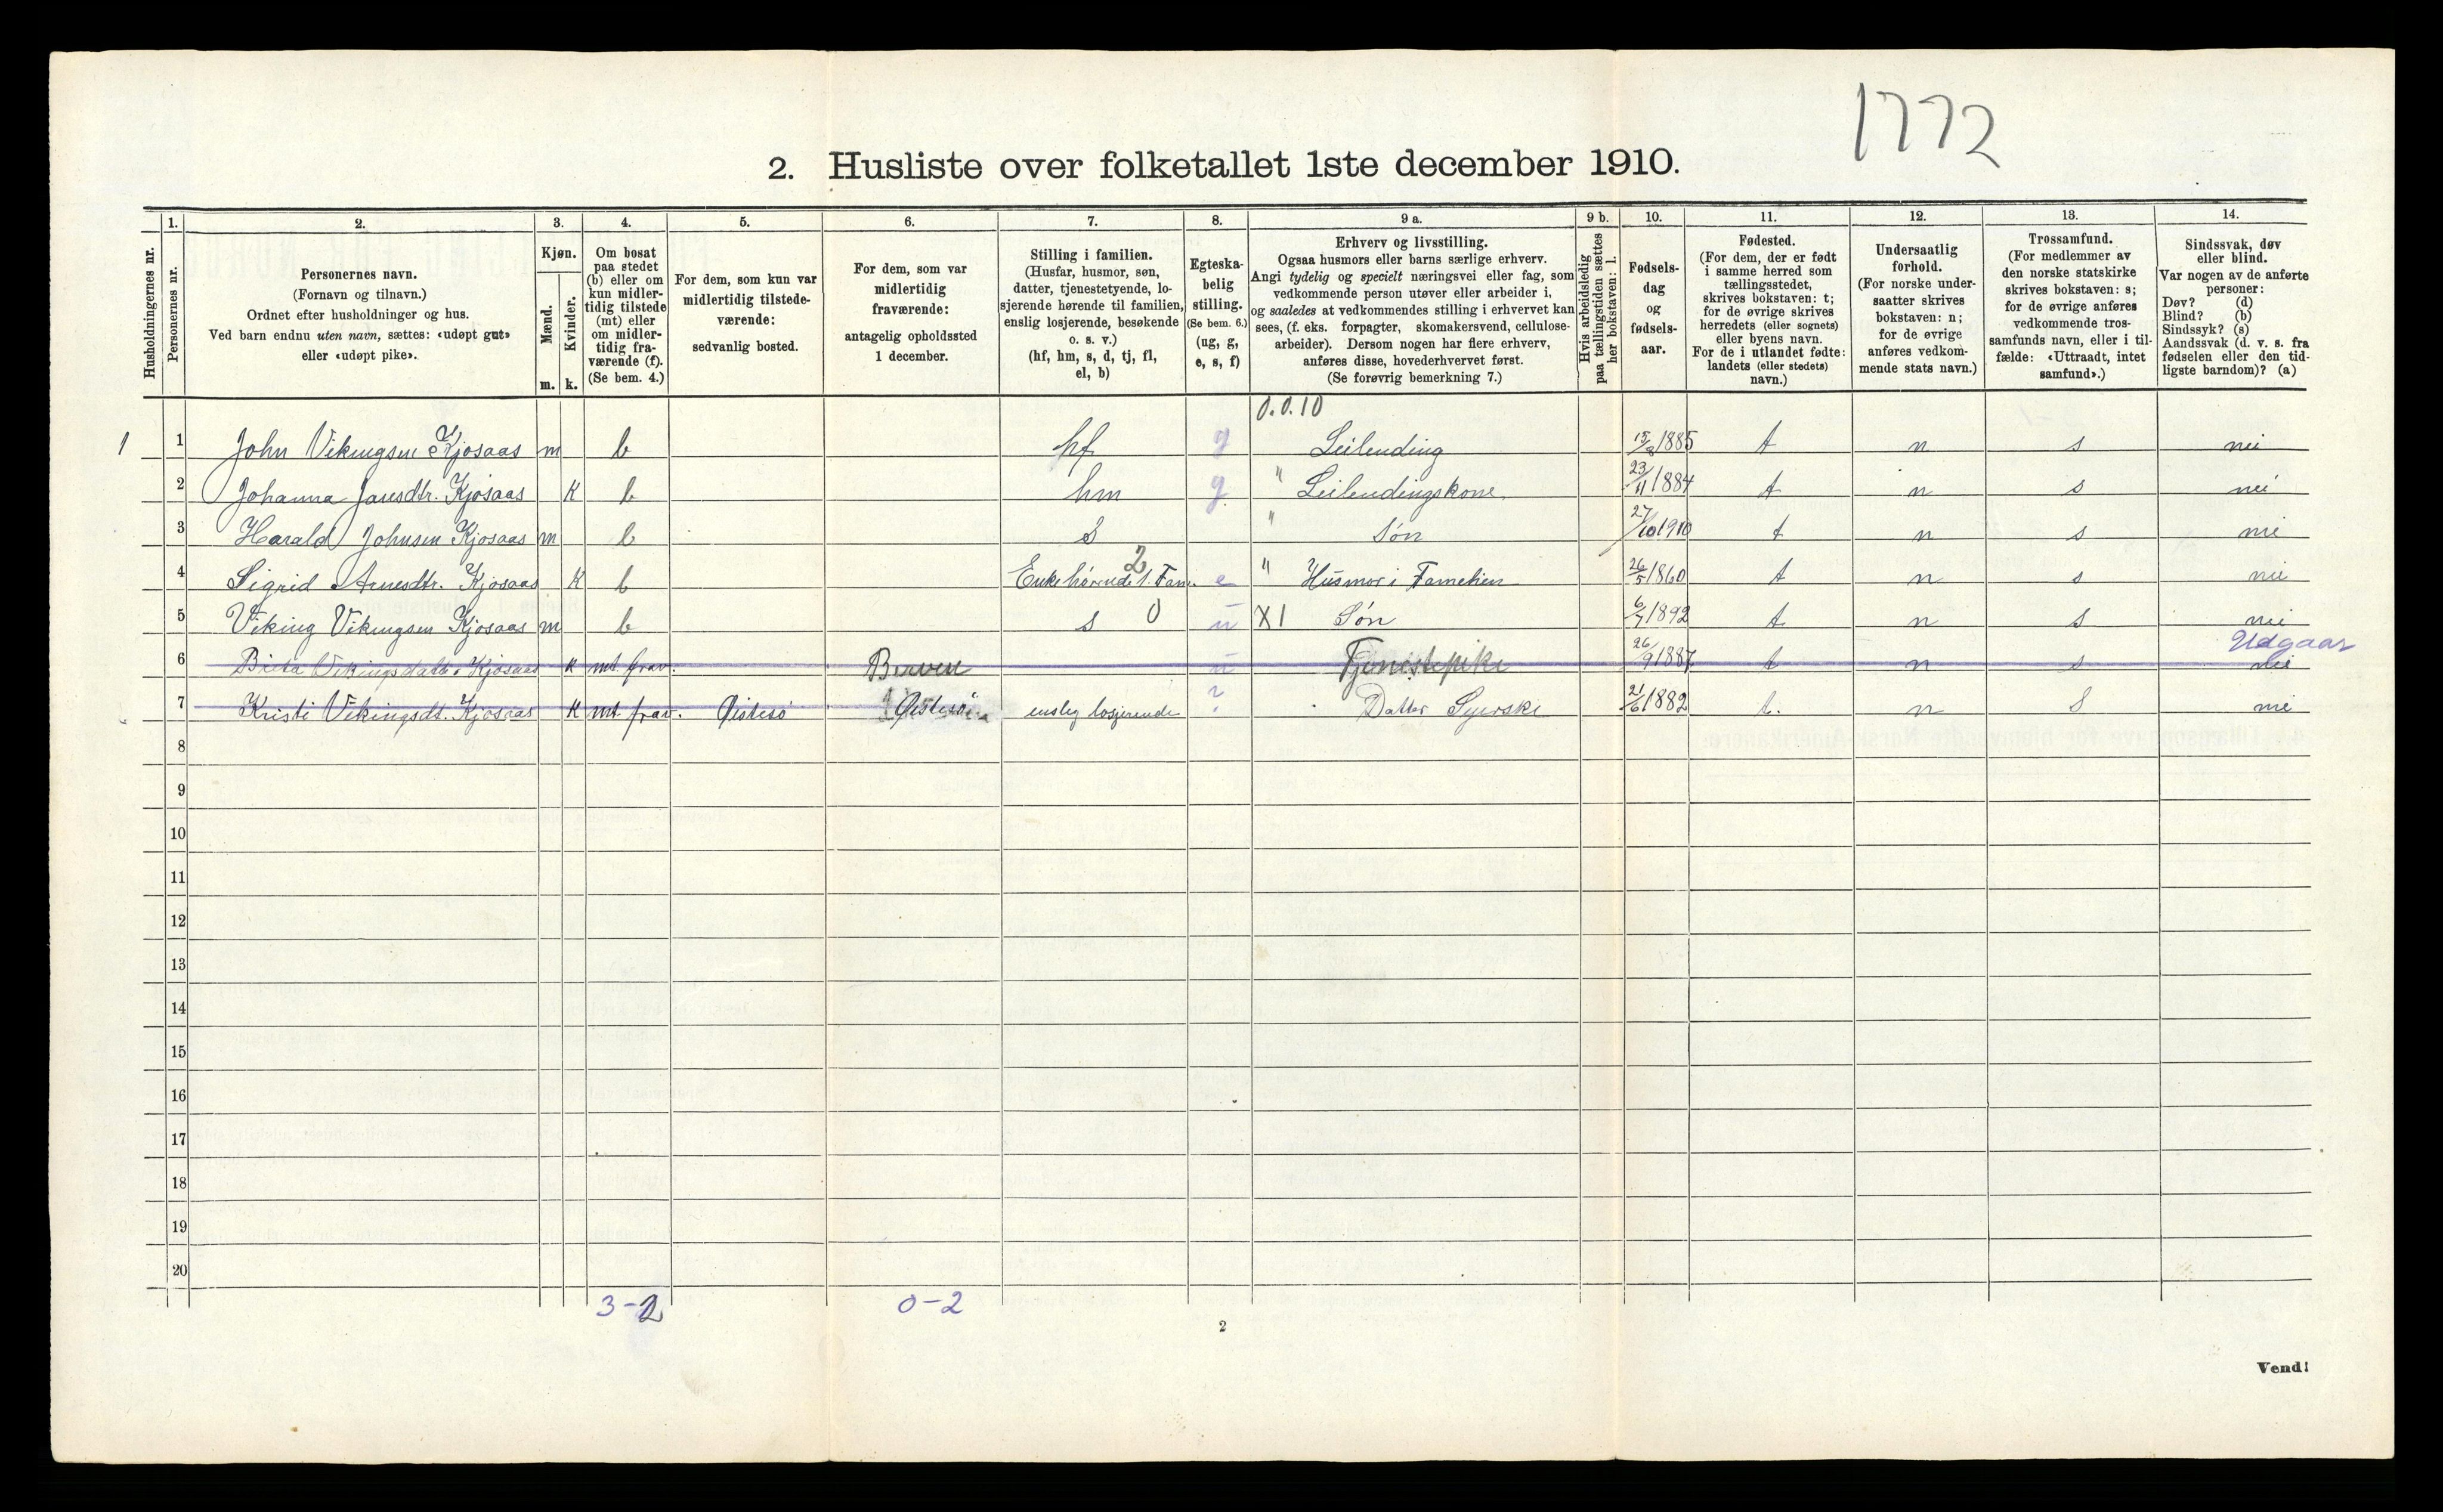 1772
2. Husliste over folketallet 1ste december 1910.
Husholdningernes nr.
1.
Personernes nr.
2.
Personernes navn.
(Fornavn og tilnavn.)
Ordnet efter husholdninger og hus.
Ved barn endnu uten navn, sættes: «udøpt gut»
eller «udøpt pike».
3.
Kjøn.
Mænd.
Kvinder.
m. k.
4.
Om bosat
paa stedet
(b) eller om
kun midler-
tidig tilstede
(mt) eller
om midler-
tidig fra-
værende (f).
(Se bem. 4.)
5.
For dem, som kun var
midlertidig tilstede-
værende:
sedvanlig bosted.
6.
For dem, som var
midlertidig
fraværende:
antagelig opholdssted
1 december.
7.
Stilling i familien.
(Husfar, husmor, søn,
datter, tjenestetyende, lo-
sjerende hørende til familien,
enslig losjerende, besøkende
o. s. v.)
(hf, hm, s, d, tj, fl,
el, b)
8.
Egteska-
belig
stilling.
(Se bem. 6.)
(ug, g,
e, s, f)
9 a.
Erhverv og livsstilling.
Ogsaa husmors eller barns særlige erhverv.
Angi tydelig og specielt næringsvei eller fag, som
vedkommende person utøver eller arbeider i,
og saaledes at vedkommendes stilling i erhvervet kan
sees, (f. eks. forpagter, skomakersvend, cellulose-
arbeider). Dersom nogen har flere erhverv,
anføres disse, hovederhvervet først.
(Se forøvrig bemerkning 7.)
9 b.
Hvis arbeidsledig
paa tællingstiden sættes
her bokstaven: l.
10.
Fødsels-
dag
og
fødsels-
aar.
11.
Fødested.
(For dem, der er født
i samme herred som
tællingsstedet,
skrives bokstaven: t;
for de øvrige skrives
herredets (eller sognets)
eller byens navn.
For de i utlandet fødte:
landets (eller stedets)
navn.)
12.
Undersaatlig
forhold.
(For norske under-
saatter skrives
bokstaven: n;
for de øvrige
anføres vedkom-
mende stats navn.)
13.
Trossamfund.
(For medlemmer av
den norske statskirke
skrives bokstaven: s;
for de øvrige anføres
vedkommende tros-
samfunds navn, eller i til-
fælde: «Uttraadt, intet
samfund».)
14.
Sindssvak, døv
eller blind.
Var nogen av de anførte
personer:
Døv? (d)
Blind? (b)
Sindssyk? (s)
Aandssvak (d. v. s. fra
fødselen eller den tid-
ligste barndom)? (a)
0.0.10
1 1 John Vikingsen Kjosaas m b hf g Leilending 15/3 1885 t n s nei
2 Johanna Jansdtr. Kjosaas K b hm g " Leilendingskone 23/11 1884 t n s nei
3 Harald Johnsen Kjosaas m b s " Søn 27/10 1910 t n s nei
2
4 Sigrid Arnesdtr. Kjosaas K b Enke hørende t. Fam. e " Husmor i Familien 26/5 1860 t n s nei
5 Viking Vikingsen Kjosaas m b s 0 u X1 Søn 6/7 1892 t n s nei
Udgaar
6 Brita Vikingsdatter Kjosaas K mt. frav. Berven u Tjenestepike 26/9 1887 t n s nei
7 Kristi Vikingsdt. Kjosaas K mt. frav. Øistesø Øistesø enslig losjerende ? Datter Syerske 21/6 1882 t. n S nei
8
9
10
11
12
13
14
15
16
17
18
19
20
3-2 0-2
2
Vend!